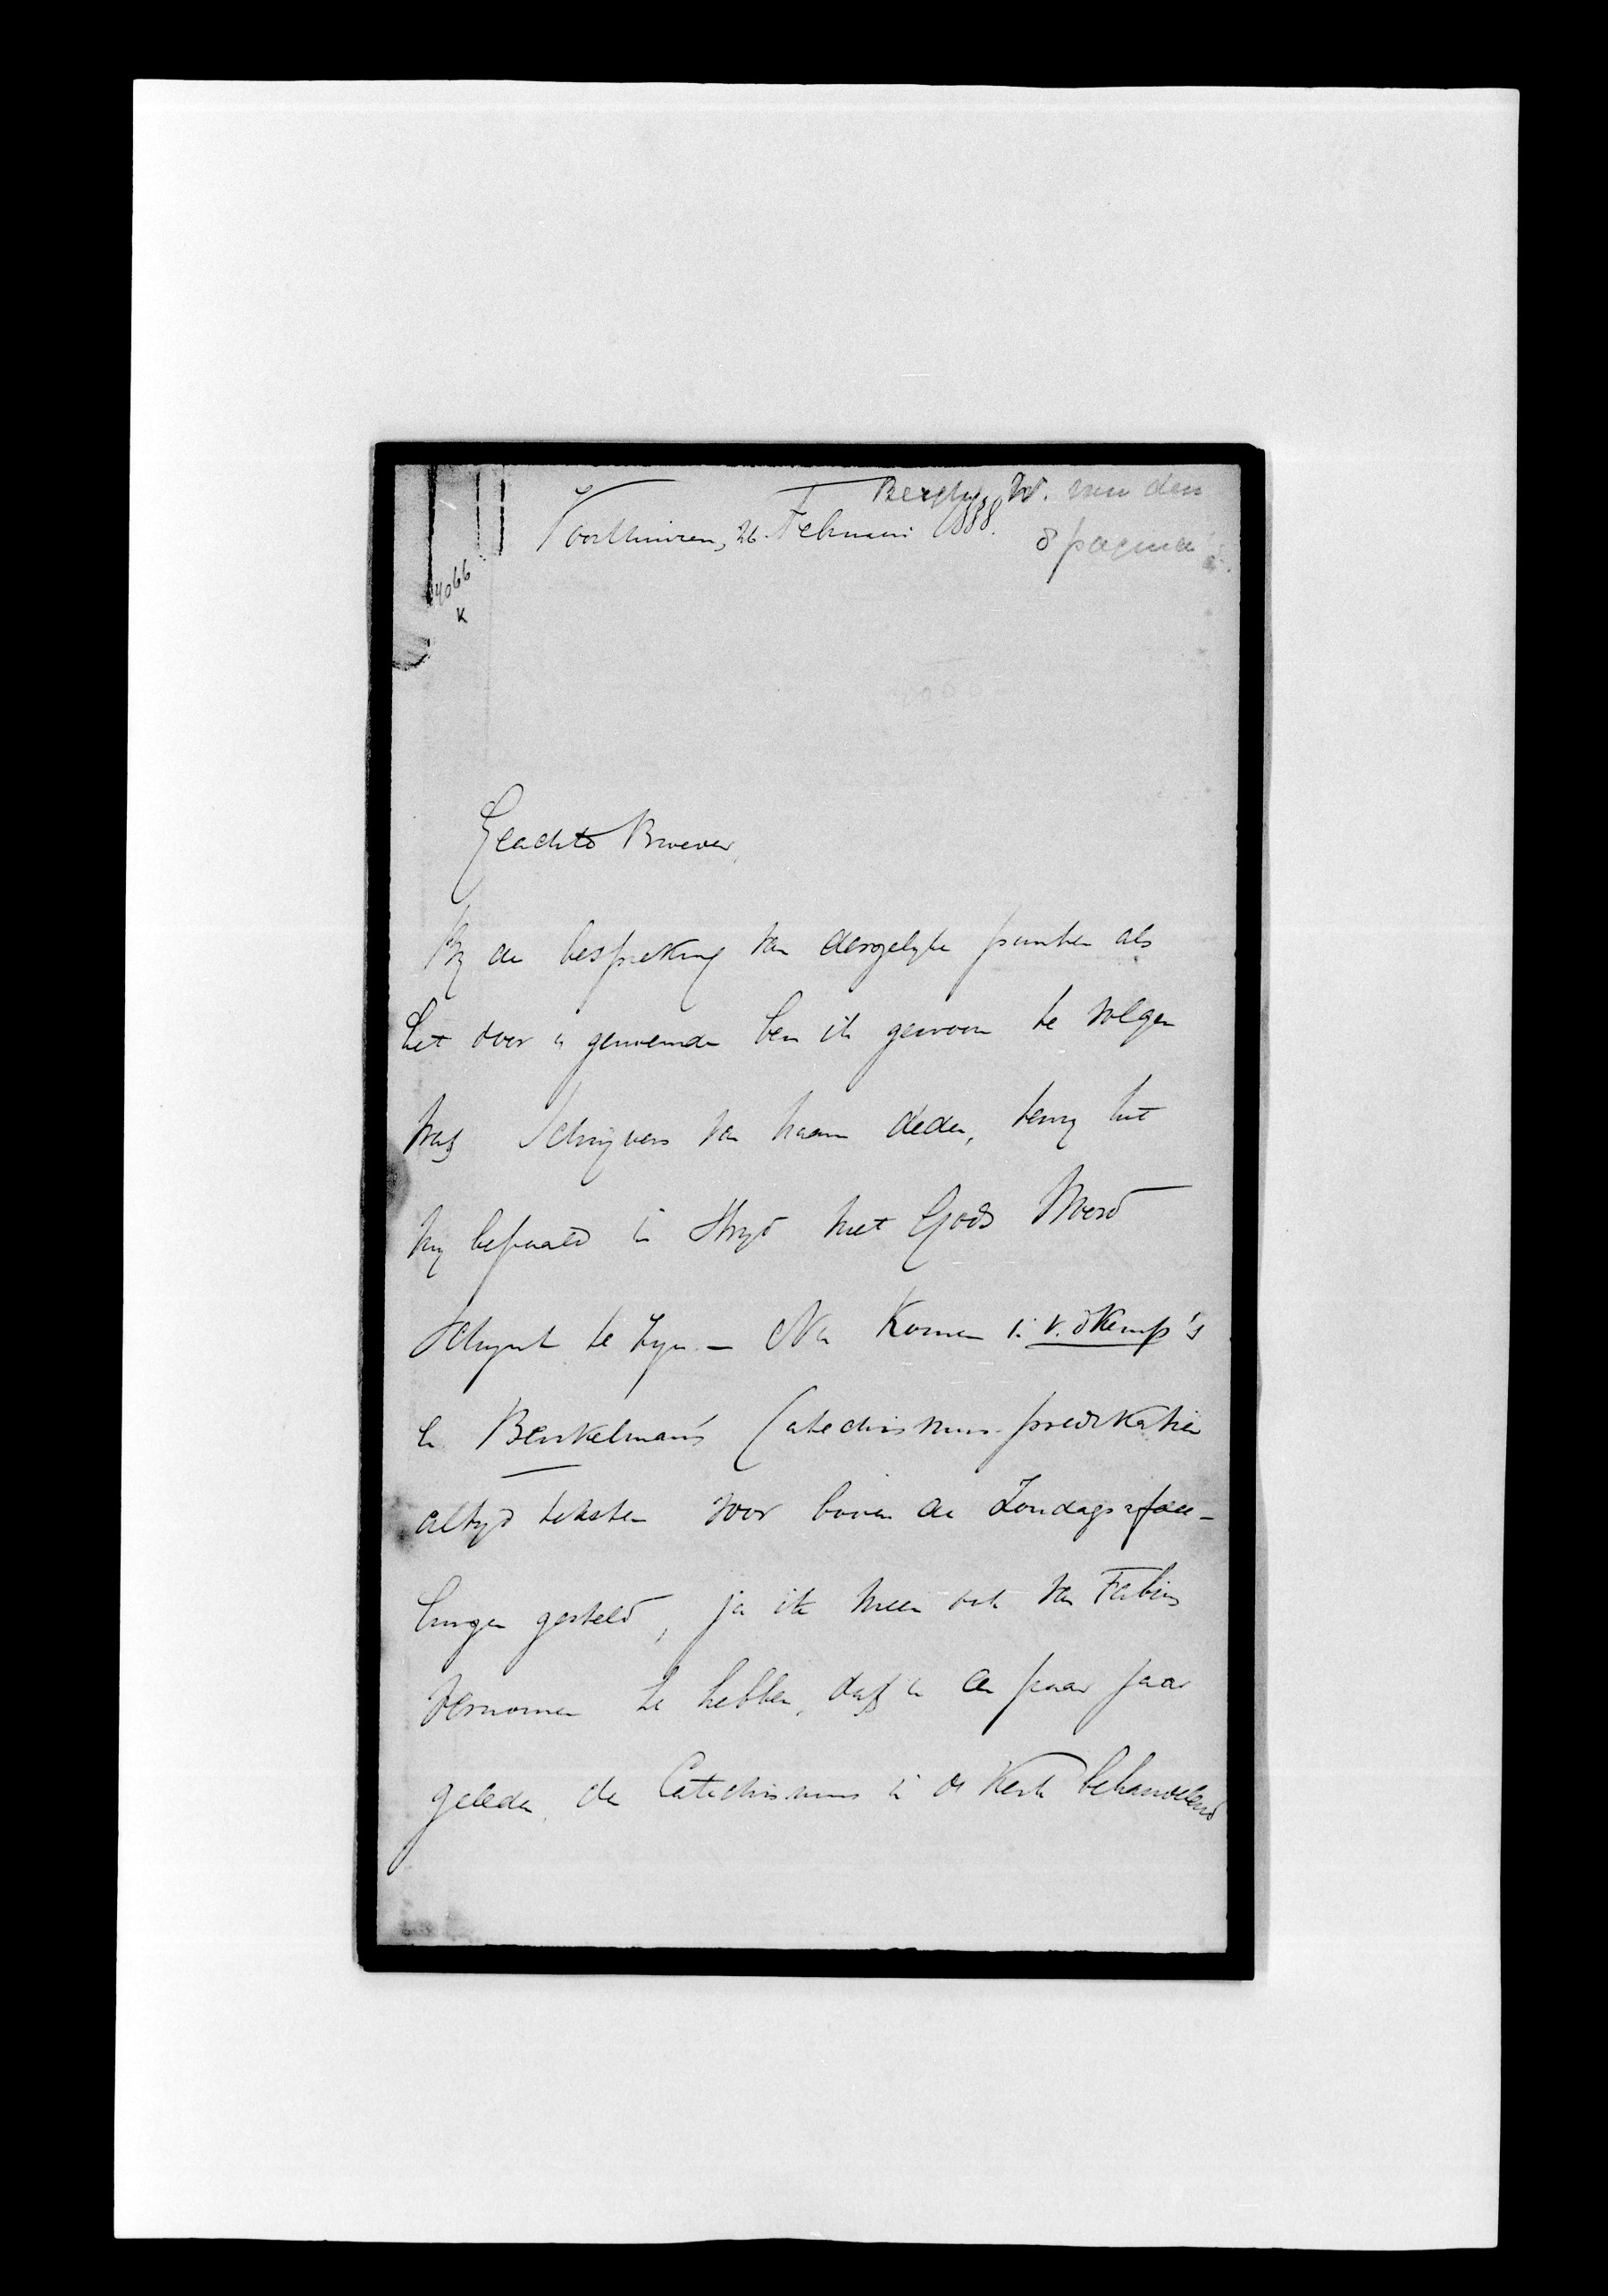 Bergh, W. van den
Voorthuizen, 26 Februari 1888.
8 pagina's.
4066
K
Geachte Broeder,
Bij de bespreking van dergelijke punten als
het door u genoemde ben ik gewoon te volgen
wat Schrijvers van naam deden, tenzij het
mij bepaald in strijd met Gods Woord
schijnt te zijn. – Nu komen in v. d Kemp's
en Beukelman's Catechismus-predikatien
altijd teksten voor boven de Zondagsafdee-
lingen gesteld, ja ik meen ook van Fabius
vernomen te hebben, dat u een paar jaar
geleden de Catechismus in de Kerk behandelend